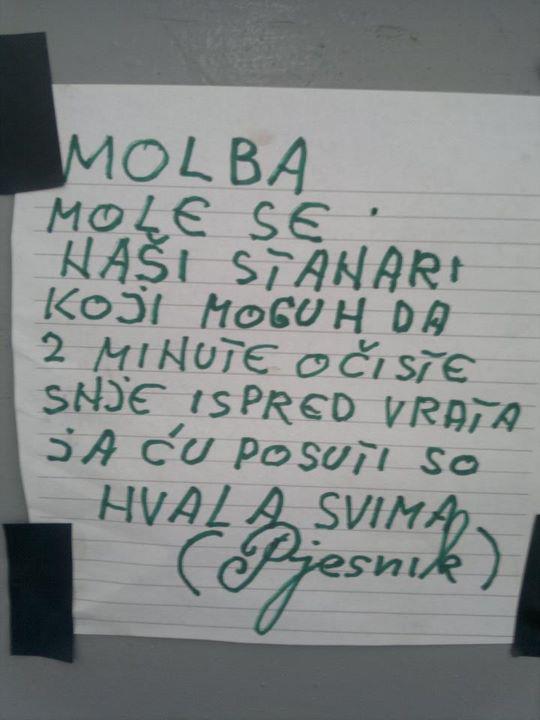 MOLBA
MOLE SE
NAŠI STANARI
KOJI MOGUH DA
2 MINUTE OČISTE
SNJE ISPRED VRATA
JA ĆU POSUTI SO
HVALA SVIMA
(Pjesnik)